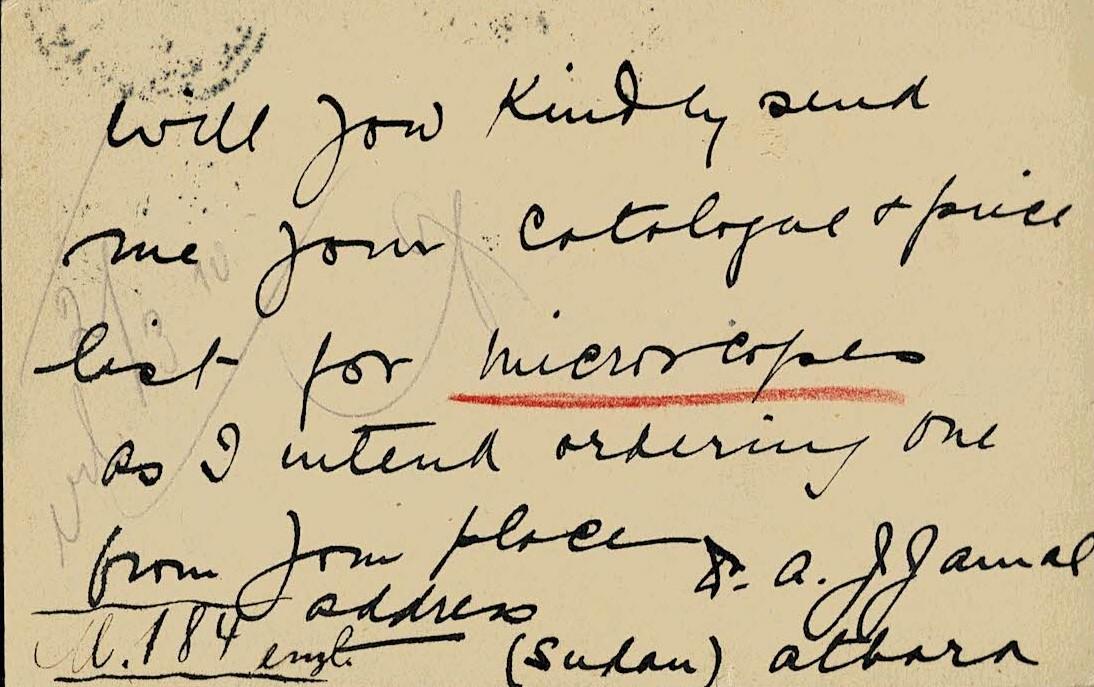 Will you kindly send
me your catalogue & price
list for microscopes
as I intend ordering one
from your place
Dr. A. J Jamal
address
M. 184 engl.
(Sudan) atbara